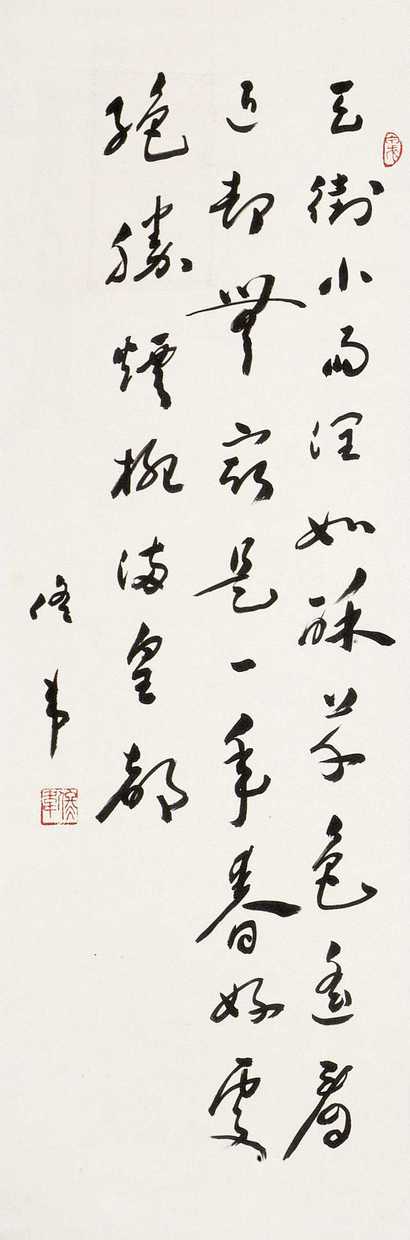 天街小雨润如酥草色遥看
近却無最是一年春好處
绝勝煙柳满皇都
佟韦